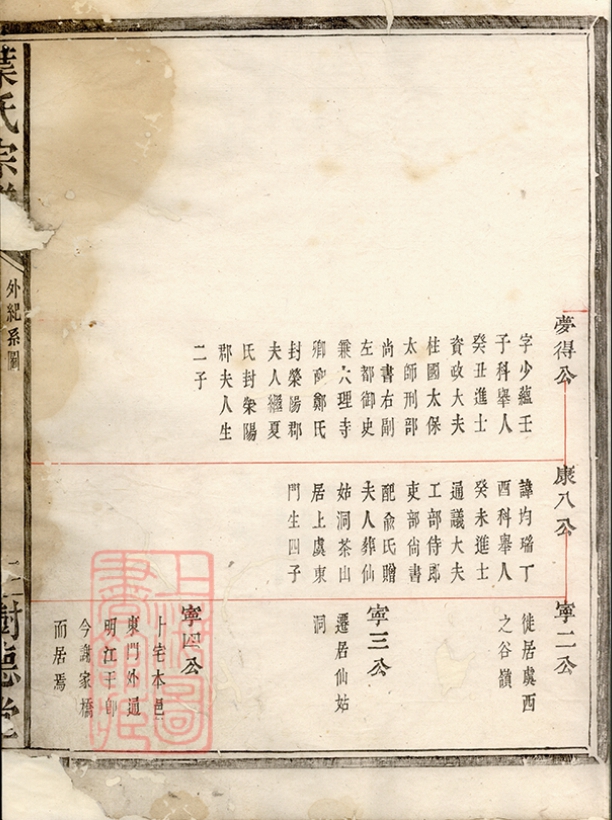 夢得公
字少蘊壬
子科舉人
癸丑進士
資政大夫
柱國太保
太師刑部
尚書右副
左都御史
兼大理寺
卿配鄭氏
封榮陽郡
夫人繼夏
氏封榮陽
郡夫人生
二子
康八公
諱均瑞丁
酉科舉人
癸未進士
通議大夫
工部侍郎
吏部尚書
配俞氏贈
夫人葬仙
姑洞茶山
居上虞東
門生四子
寧二公
徙居虞西
之谷嶺
寧三公
遷居仙姑
洞
寧四公
卜宅本邑
東門外通
明江干即
今譚家橋
而居焉
葉氏宗譜
外紀系圖
二
樹德堂
上海圖
書館藏